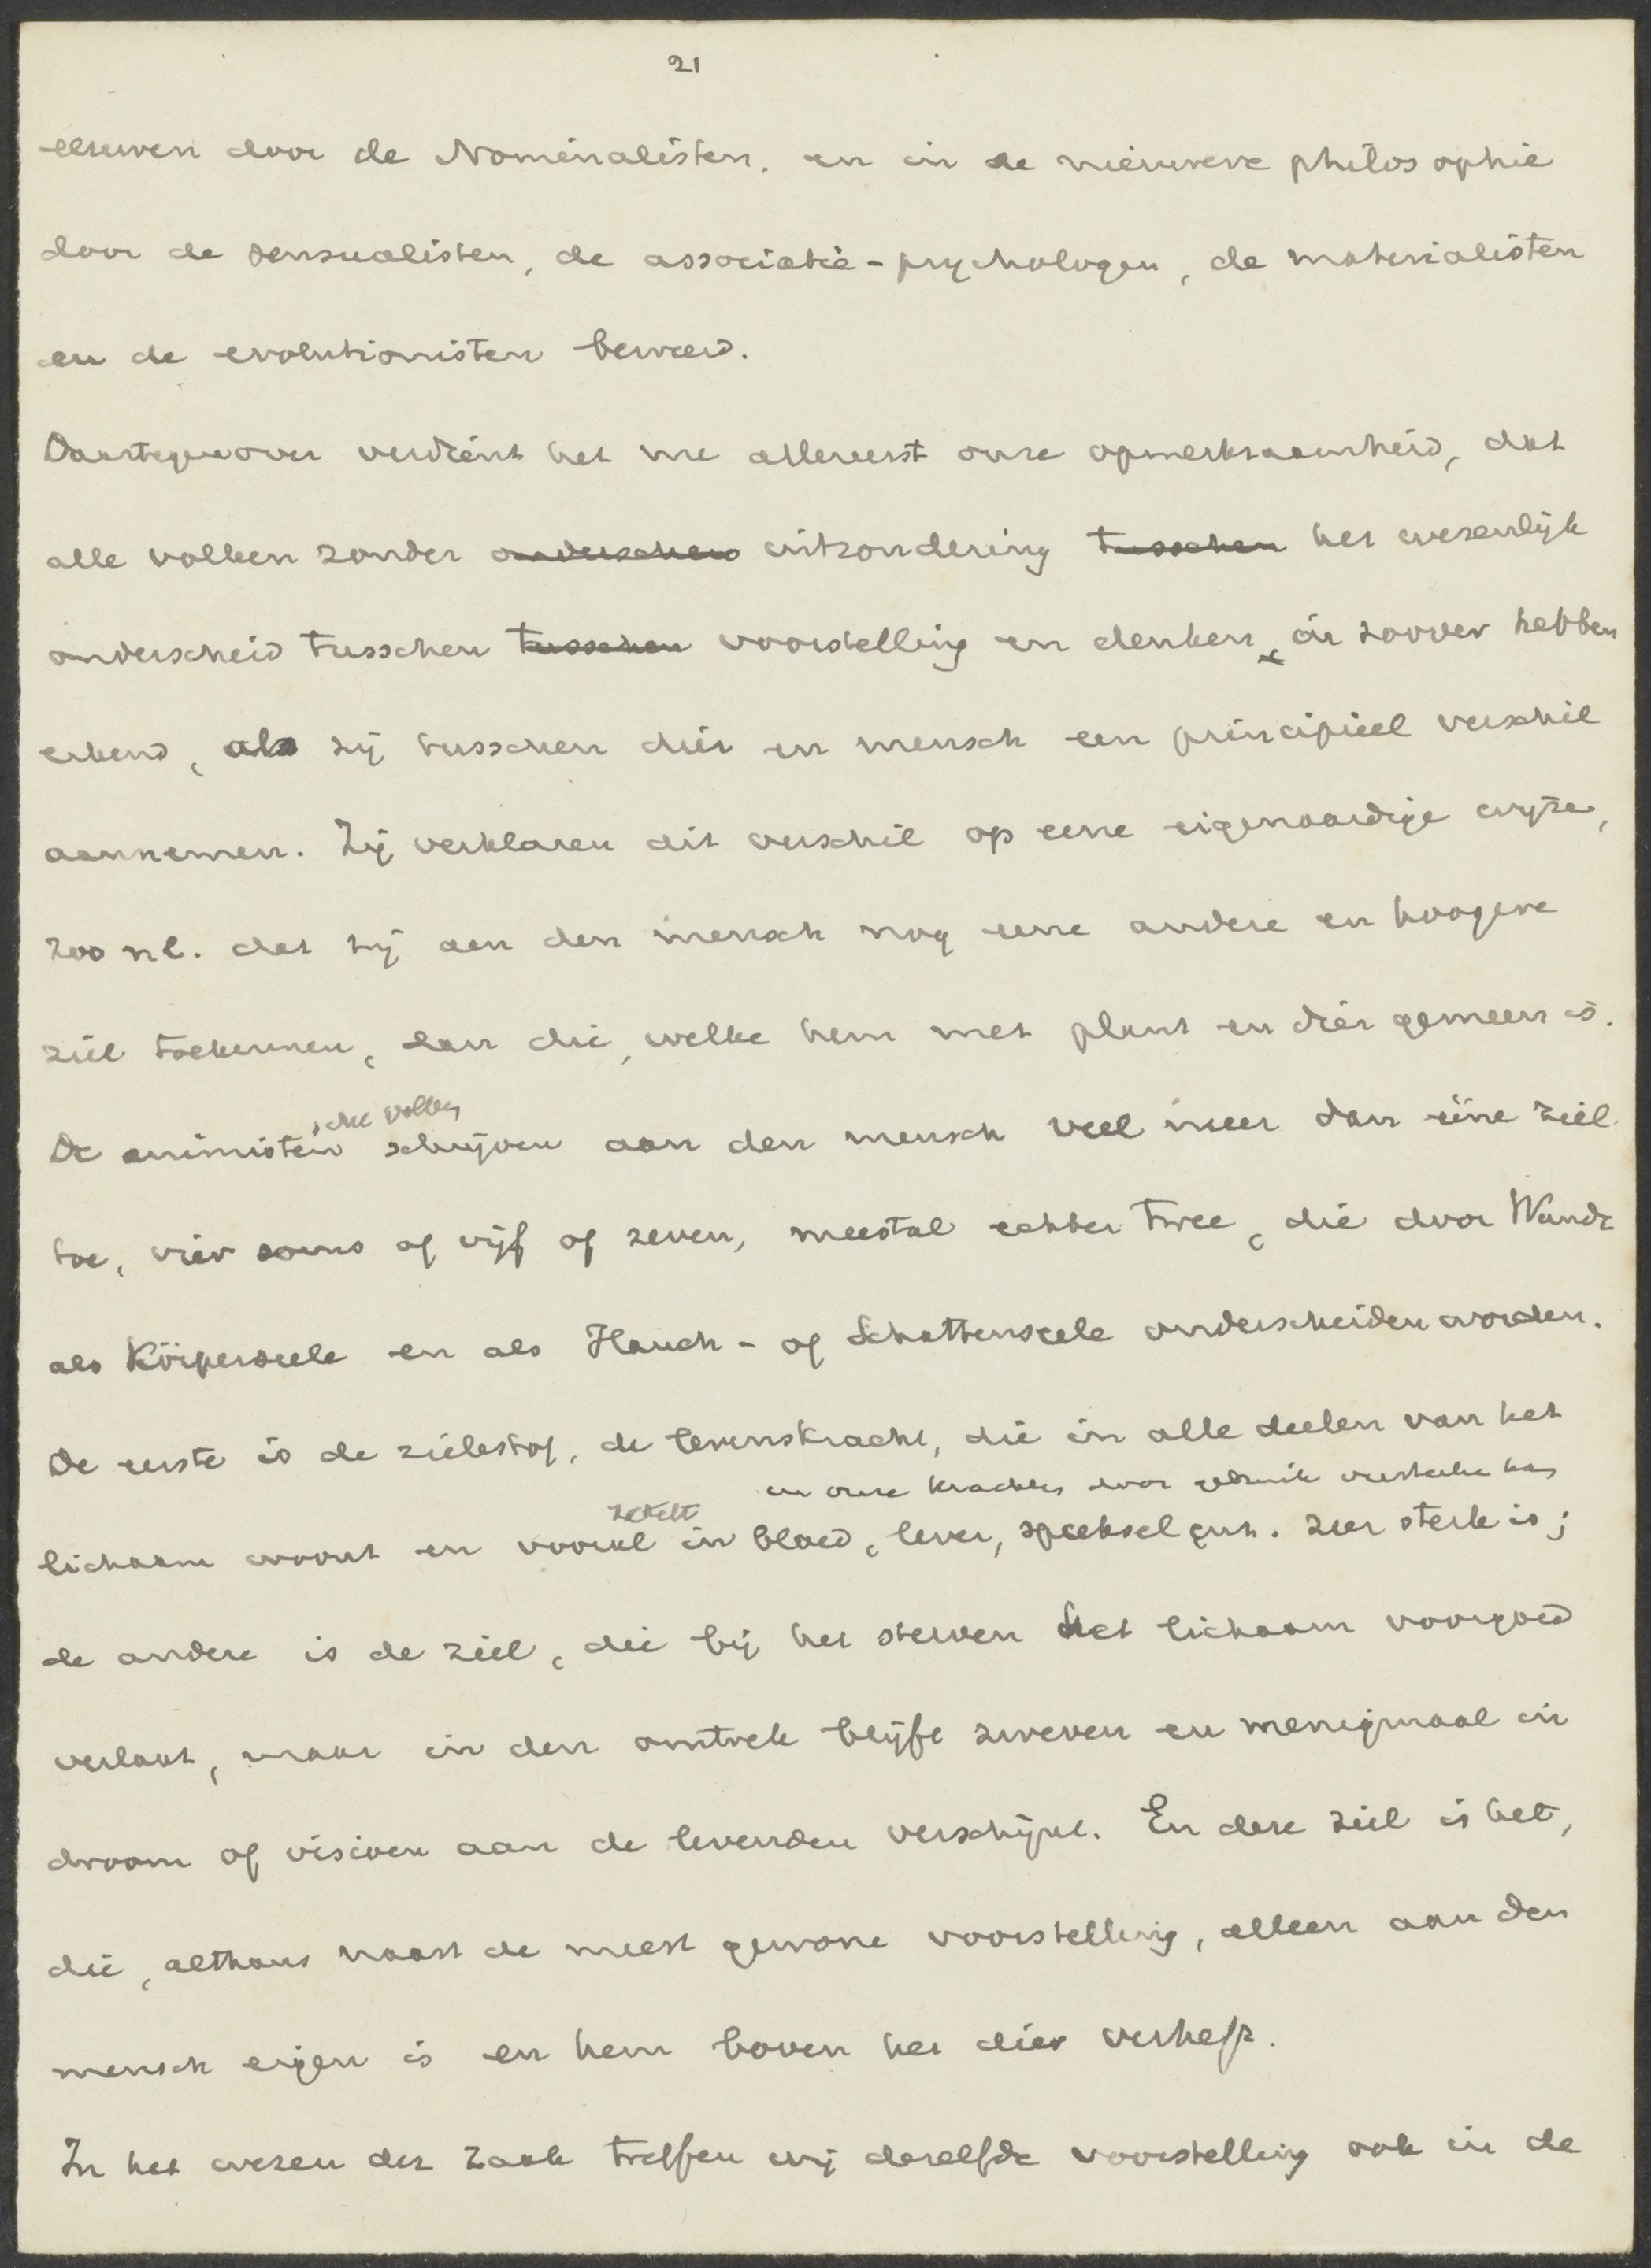 21
eeuwen door de Nominalisten, en in de nieuwere philosophie
door de sensualisten, de associatie-psychologen, de materialisten
en de evolutionisten beweerd.
Daartegenover verdient het nu allereerst onze opmerkzaamheid, dat
alle volken zonder onderscheid uitzondering tusschen het wezenlijk
onderscheid tusschen tusschen voorstelling en denken, in zoover hebben
erkend, als zij tusschen dier en mensch een principieel verschil
aannemen. Zij verklaren dit verschil op eene eigenaardige wijze,
zoo nl. dat zij aan den mensch nog eene andere en hoogere
ziel toekennen, dan die, welke hem met plant en dier gemeen is.
De animistische volken schrijven aan den mensch veel meer dan eéne ziel
toe, vier soms of vijf of zeven, meestal echter twee, die door Wundt
als Körperseele en als Hauch- of Schattenseele onderscheiden worden.
De eerste is de zielestof, de levenskracht, die in alle deelen van het
en onze krachten door
lichaam woont en vooral zetelt in bloed, lever, speeksel enz. zeer sterk is;
de andere is de ziel, die bij het sterven het lichaam voorgoed
verlaat, maar in den omtrek blijft zweven en menigmaal in
droom of visioen aan de levenden verschijnt. En deze ziel is het,
die, althans naast de meest gewone voorstelling, alleen aan den
mensch eigen is en hem boven het dier verheft.
In het wezen der zaak treffen wij dezelfde voorstelling ook in de